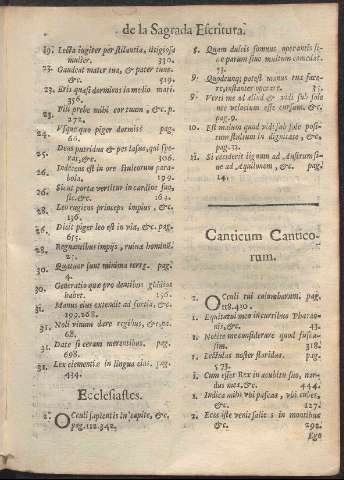 de la Sagrada Escritura.
19. Tecta iugiter perstilantia, litigiosa
mulier. 330.
23. Gaudeat mater tua, & pater tuus
&c. 519.
23. Eris quasi dormiens in medio mari
356.
23. Fili præbe mihi cor tuum, &c. p.
272.
24. Usque quo piger dormis pag.
66.
25. Dens putridus & pes lassus, qui spe-
rat, &c. 306.
26. in ore stultorum para-
bola. 199.
26. Sicut porta vertitur in cardine suo,
sic, &c. 164.
28. Leo rugiens princeps impius, &c.
136.
26. Dicit piger leo est in via, &c. pag.
655.
28. Regnantibus impijs, ruina hominũ
25.
30. Quatuor sunt minima terræ. pag.
4.
30. Generatio quæ pro dentibus gladios
habet. 156.
31. Manus eius extendit ad fortia, &c.
199.268.
31. Noli vinum dare regibus, &c. pag.
68.
31. Date siceram merentibus. pag.
698.
31. Lex clementiæ in lingua eius. pag.
434.
Ecclesiastes.
2. OCculi sapientis in capite, &c.
pag. 122.342.
8. Quam dulcis somnus operantis si-
ve parum sive multum comedat.
73.
9. Quodcunq; potest manus tua face-
re, instanter operare. 35.
9. Verti me ad aliud & vidi sub sole
nec velocium esse cursum, &c.
pag. 9.
10. Est malum quod vidi sub sole posi-
tum stultum in dignitate, &c.
pag. 12.
11. Si ceciderit lignum ad Austrum si-
ve ad Aquilonem, &c. pag.
14.
Canticum Cantico-
rum.
1. OCculi tui columbarum. pag.
118.430.
1. Equitatui meo in curribus Pharao-
nis, &c. 43.
1. Nolite me considerare quod fusca
sim. 318.
1. Lectulus noster floridus. pag.
573.
1. Cum esset Rex in accubitu suo, nar-
dus mea, &c. 444.
1. Indica mihi ubi pascas, ubi cubes,
&c. 127.
2. Ecce iste venit saliens in montibus
&c. 292.
Ego